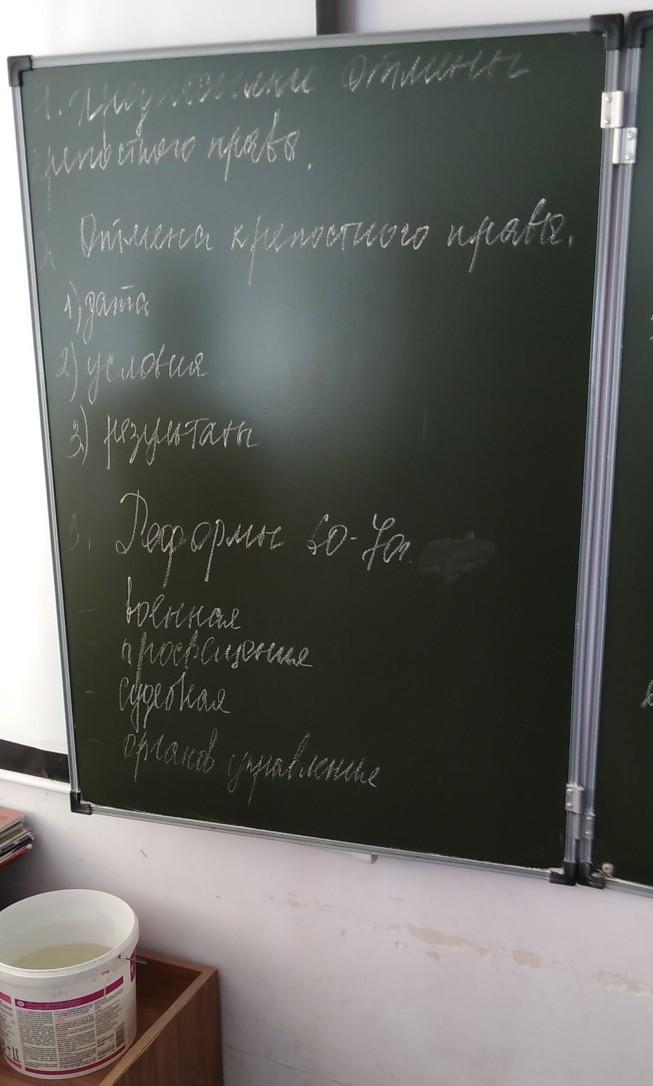 1. Предпосылки отмены
крепостного права.
2 Отмена крепостного права.
1) дата
2) условия
3) результаты
3. Реформы 60-70
- военная
просвещения
- судебная
- органов управления